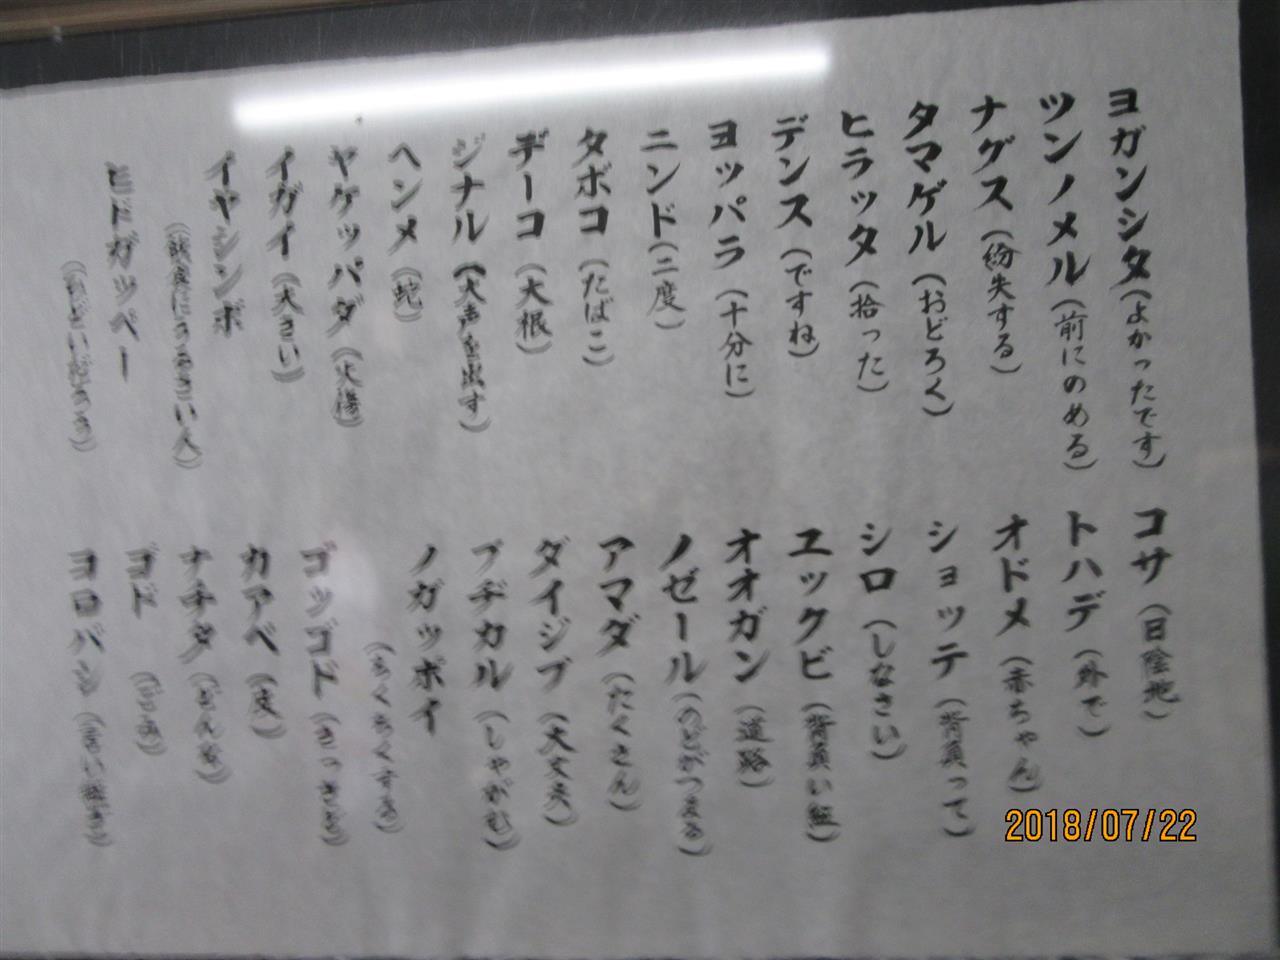 ヨガンシタ(よかったです)
ツンノメル(前にのめる)
ナゲス(紛失する)
タマゲル(おどろく)
ヒラッタ(拾った)
デンス(ですね)
ヨッパラ(十分に)
ニンド(二度)
タボコ(たばこ)
デーコ(大根)
ジナル(大声を出す)
ヘンメ(蛇)
ヤケッパダ(火傷)
イガイ(大きい)
イヤシンボ
(飲食にうるさい人)
ヒドガッペー
(ひどいだろう)
コサ(日陰地)
トハデ(外で)
オドメ(赤ちゃん)
ショッテ(背負って)
シロ(しなさい)
ユックビ(背負い紐)
オオガン(道路)
ノゼール(のどがつまる)
アマダ(たくさん)
ダイジブ(大丈夫)
ブヂカル(しゃがむ)
ノガッポイ
(ちくちくする)
ゴッゴド(きっきと)
カアベ(皮)
ナチタ(どんな)
ゴド(ごみ)
ヨロバシ
2018/07/22